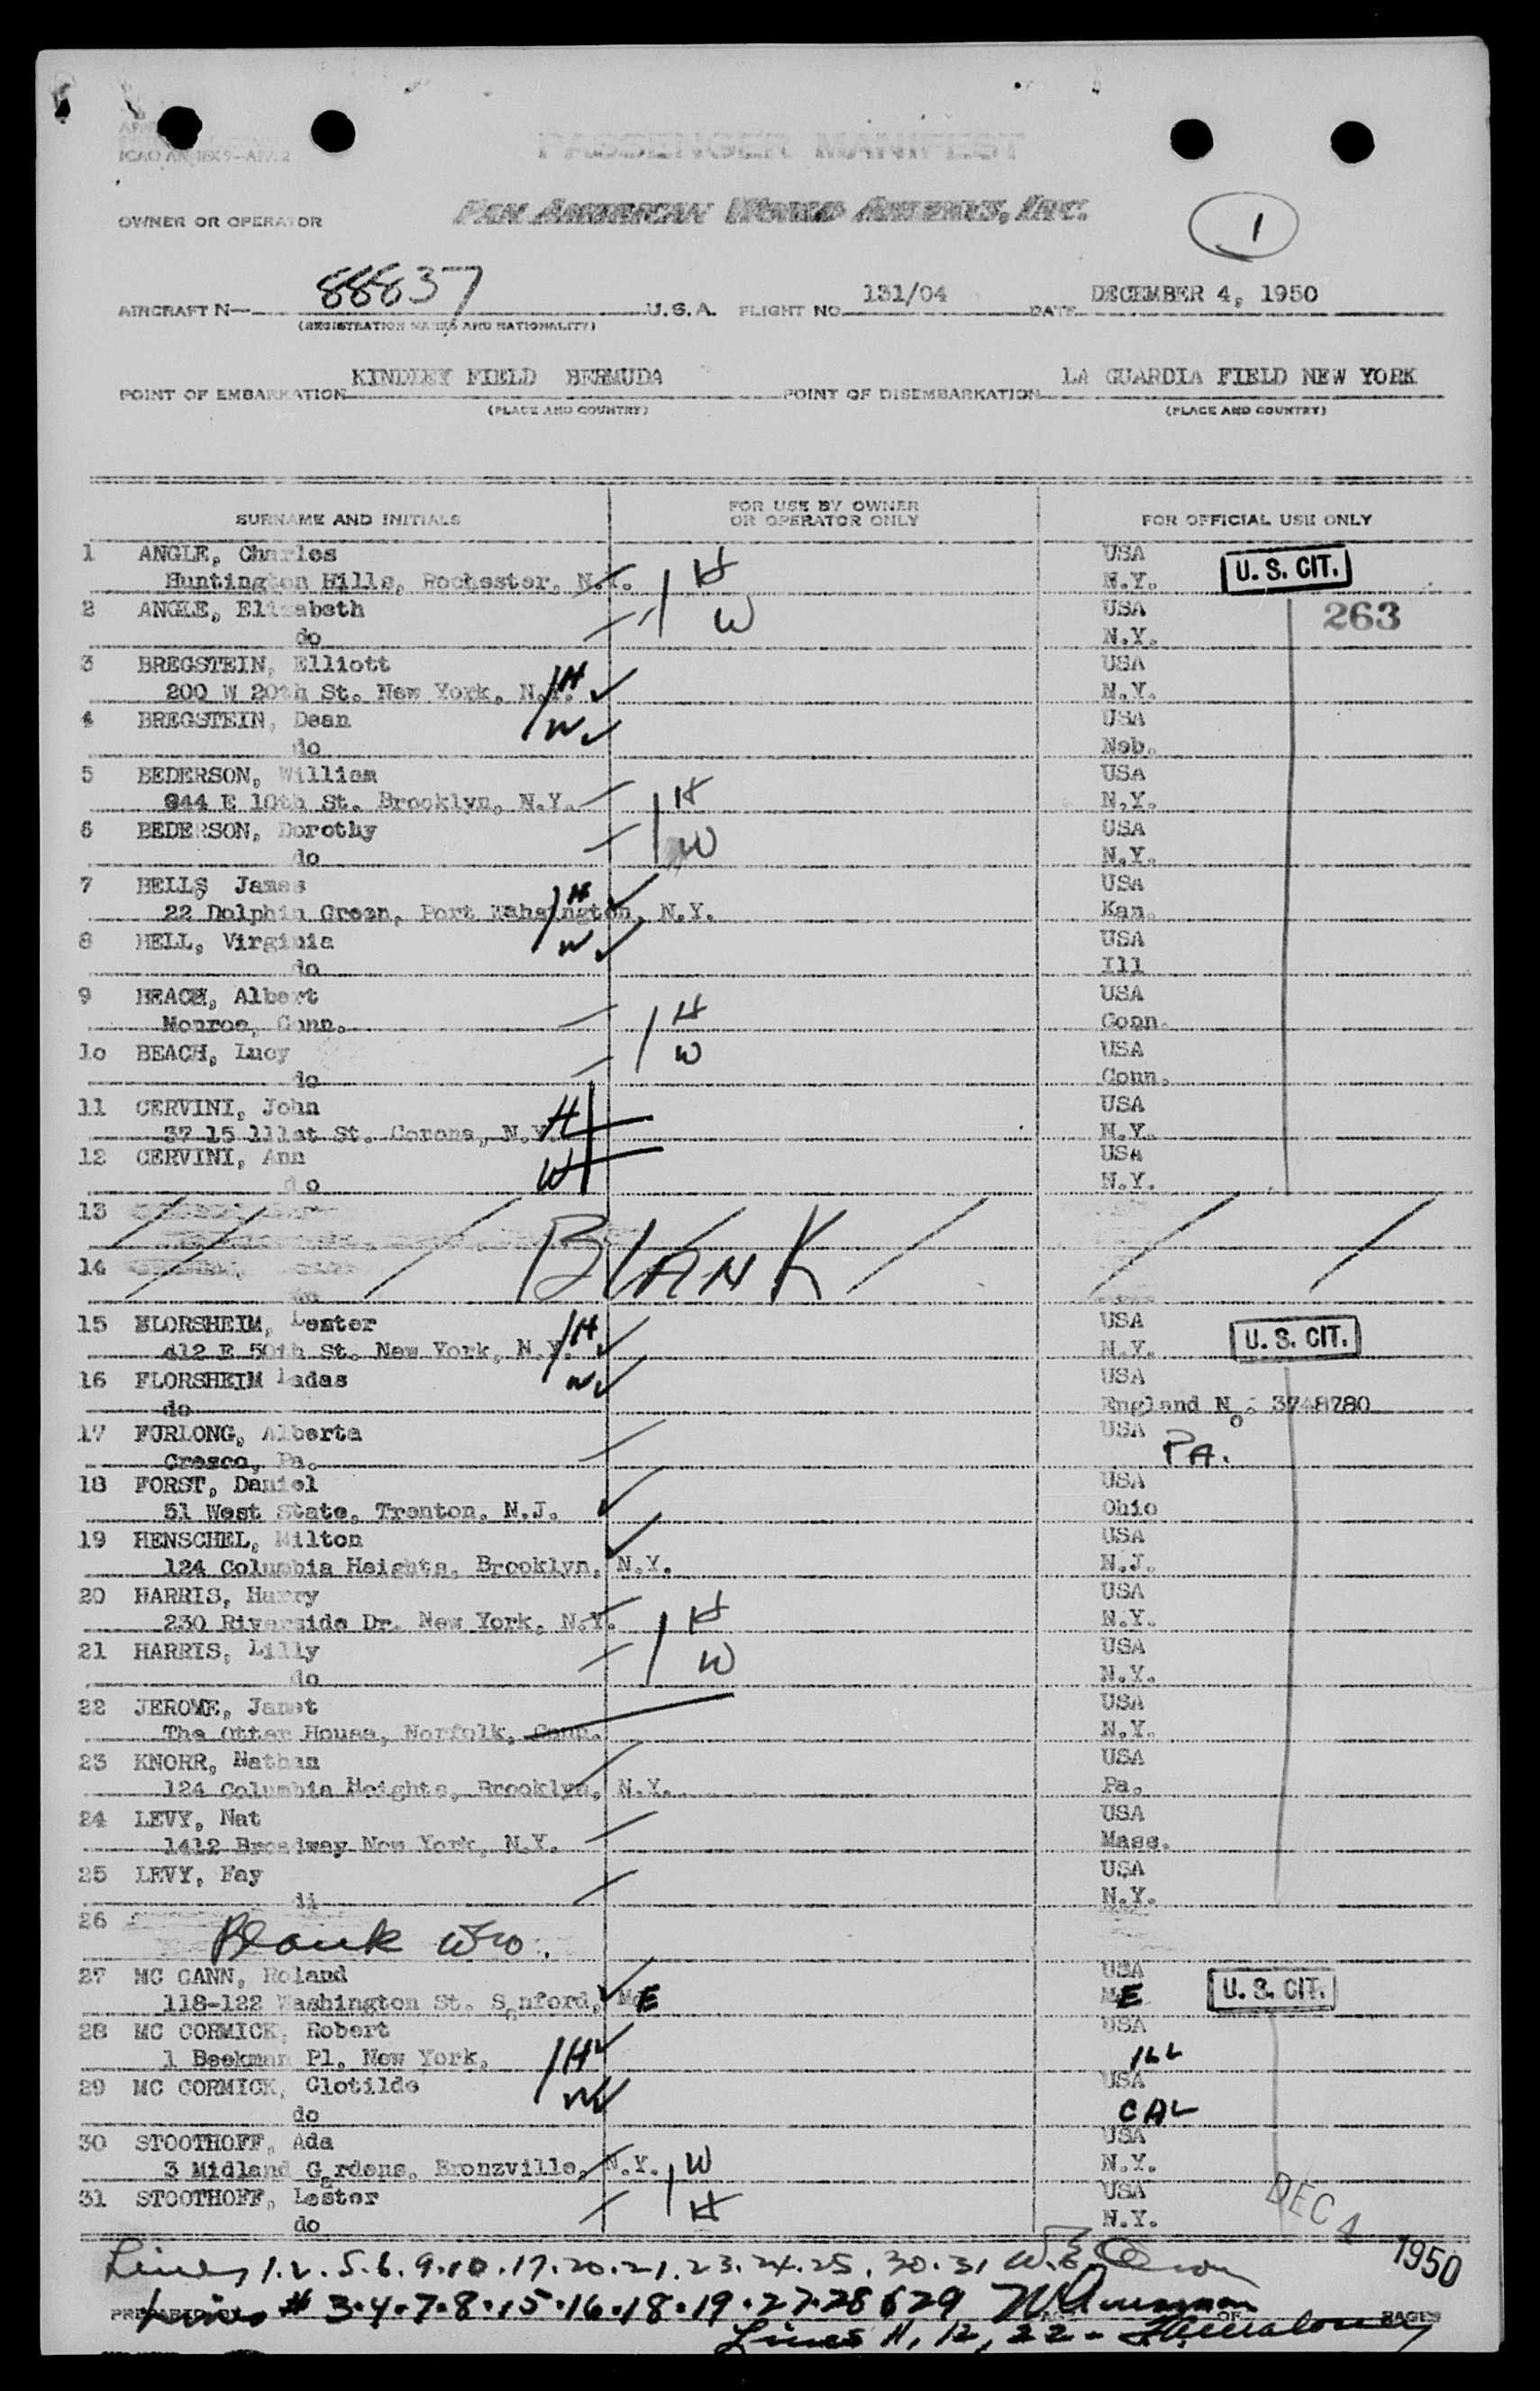 ICAO ANNEX 9-APP. 2
PASSENGER MANIFEST
OWNER OR OPERATOR PAN AMERICAN WORLD AIRWAYS, INC. 1
AIRCRAFT N— 88837 U.S.A. FLIGHT NO. 131/04 DATE DECEMBER 4, 1950
(REGISTRATION MARKS AND NATIONALITY)
POINT OF EMBARKATION KINDLEY FIELD BERMUDA POINT OF DISEMBARKATION LA GUARDIA FIELD NEW YORK
(PLACE AND COUNTRY) (PLACE AND COUNTRY)
SURNAME AND INITIALS FOR USE BY OWNER OR OPERATOR ONLY FOR OFFICIAL USE ONLY
1 ANGLE, Charles USA
Huntington Hills, Rochester, N.Y. H N.Y. U. S. CIT.
2 ANGLE, Elizabeth W USA 263
do N.Y.
3 BREGSTEIN, Elliott USA
200 W 20th St. New York, N.Y. H N.Y.
4 BREGSTEIN, Dean W USA
do Neb.
5 BEDERSON, William USA
944 E 10th St. Brooklyn, N.Y. H N.Y.
6 BEDERSON, Dorothy W USA
do N.Y.
7 BELLS James H USA
22 Dolphin Green, Port Wahsington, N.Y. Kan.
8 BELL, Virginia W USA
do Ill
9 BEACH, Albert H USA
Monroe, Conn. Conn.
10 BEACH, Lucy W USA
do Conn.
11 CERVINI, John H USA
37 15 111st St. Corona, N.Y. N.Y.
12 CERVINI, Ann W USA
do N.Y.
13
BLANK
14
15 FLORSHEIM, Lester H USA
412 E 50th St. New York, N.Y. N.Y. U. S. CIT.
16 FLORSHEIM Ladas W USA
do England No: 3748780
17 FURLONG, Alberta USA
Cresco, Pa. PA.
18 FORST, Daniel USA
51 West State, Trenton, N.J. Ohio
19 HENSCHEL, Milton USA
124 Columbia Heights, Brooklyn, N.Y. N.J.
20 HARRIS, Harry USA
230 Riverside Dr. New York, N.Y. H N.Y.
21 HARRIS, Lilly W USA
do N.Y.
22 JEROME, Janet USA
The Otter House, Norfolk, Conn. N.Y.
23 KNORR, Nathan USA
124 Columbia Heights, Brooklyn, N.Y. Pa.
24 LEVY, Nat USA
1412 Broadway New York, N.Y. Mass.
25 LEVY, Fay USA
N.Y.
26
Blank
27 MC CANN, Roland USA
118-122 Washington St. Sanford, ME ME U. S. CIT.
28 MC CORMICK, Robert USA
1 Beekman Pl, New York, H ILL
29 MC CORMICK, Clotilde W USA
do CAL
30 STOOTHOFF, Ada USA
3 Midland Gardens, Bronzville, N.Y. W N.Y.
31 STOOTHOFF, Lester H USA
do N.Y.
DEC 4 1950
Lines 1.2.5.6.9.10.17.20.21.23.24.25.30.31
Lines # 3.4.7.8.15.16.18.19.27.28 & 29
OF PAGES
Lines 11, 12, 22 -